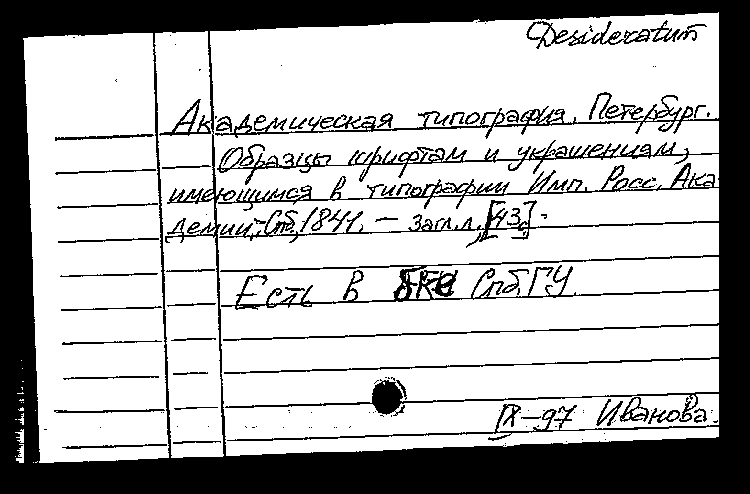 Desideratum
Академическая типография. Петербург.
Образцы шрифтам и украшениям,
имеющимся в типографии Имп. Росс. Ака-
демии,- Спб, 1841. — Загл. л., [43с].
Есть в СпбГУ
IX-97 Иванова.